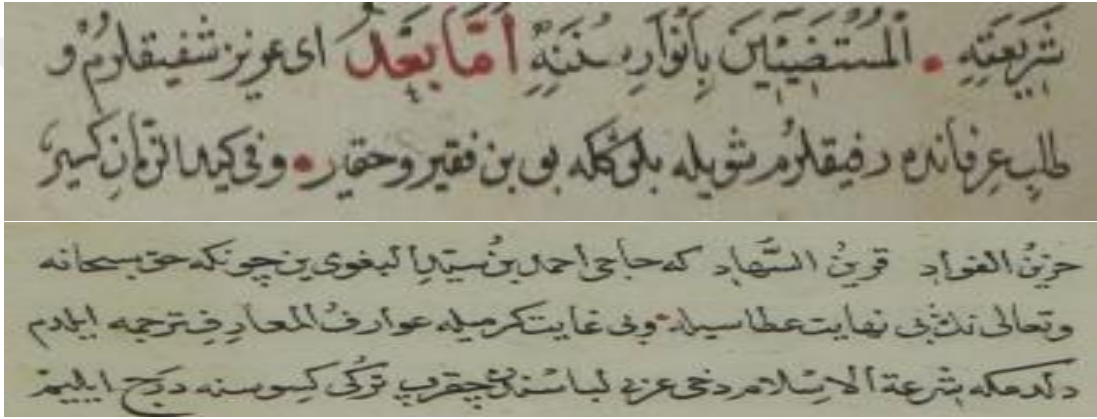 شَرِيعَتِهِ • اَلْمُسْتَضِيئِينَ بِأَنْوَارِ سُنَنِهِ أَمَّا بَعْدُ اى عزيز شفيقلرُمْ و
طالبِ عِرفاندہ رفيقلرُم شويله بلوڭكه بو بن فقير وحقير • وفى كيد الزّمانِ كسير
حزينُ الفواد قرينُ السُّهاد كه حاجى احمد بن سيّد البغوى ين چونكه حق سبحانه
وتعالى نڭ بى نهايت عطاسيله • وبى غايت كرميله عوارفُ المعارفِ ترجمه ايلدم
دلدمكه شرعة الاسلام دخى عربى لباسندن چقرب تركى كسوسنه درج ايلييم